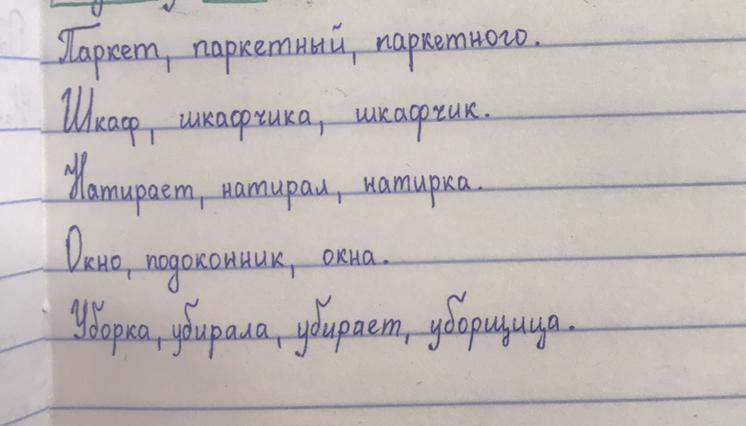 Паркет, паркетный, паркетного.
Шкаф, шкафчика, шкафчик.
Натирает, натирал, натирка.
Окно, подоконник, окна.
Уборка, убирала, убирает, уборщица.